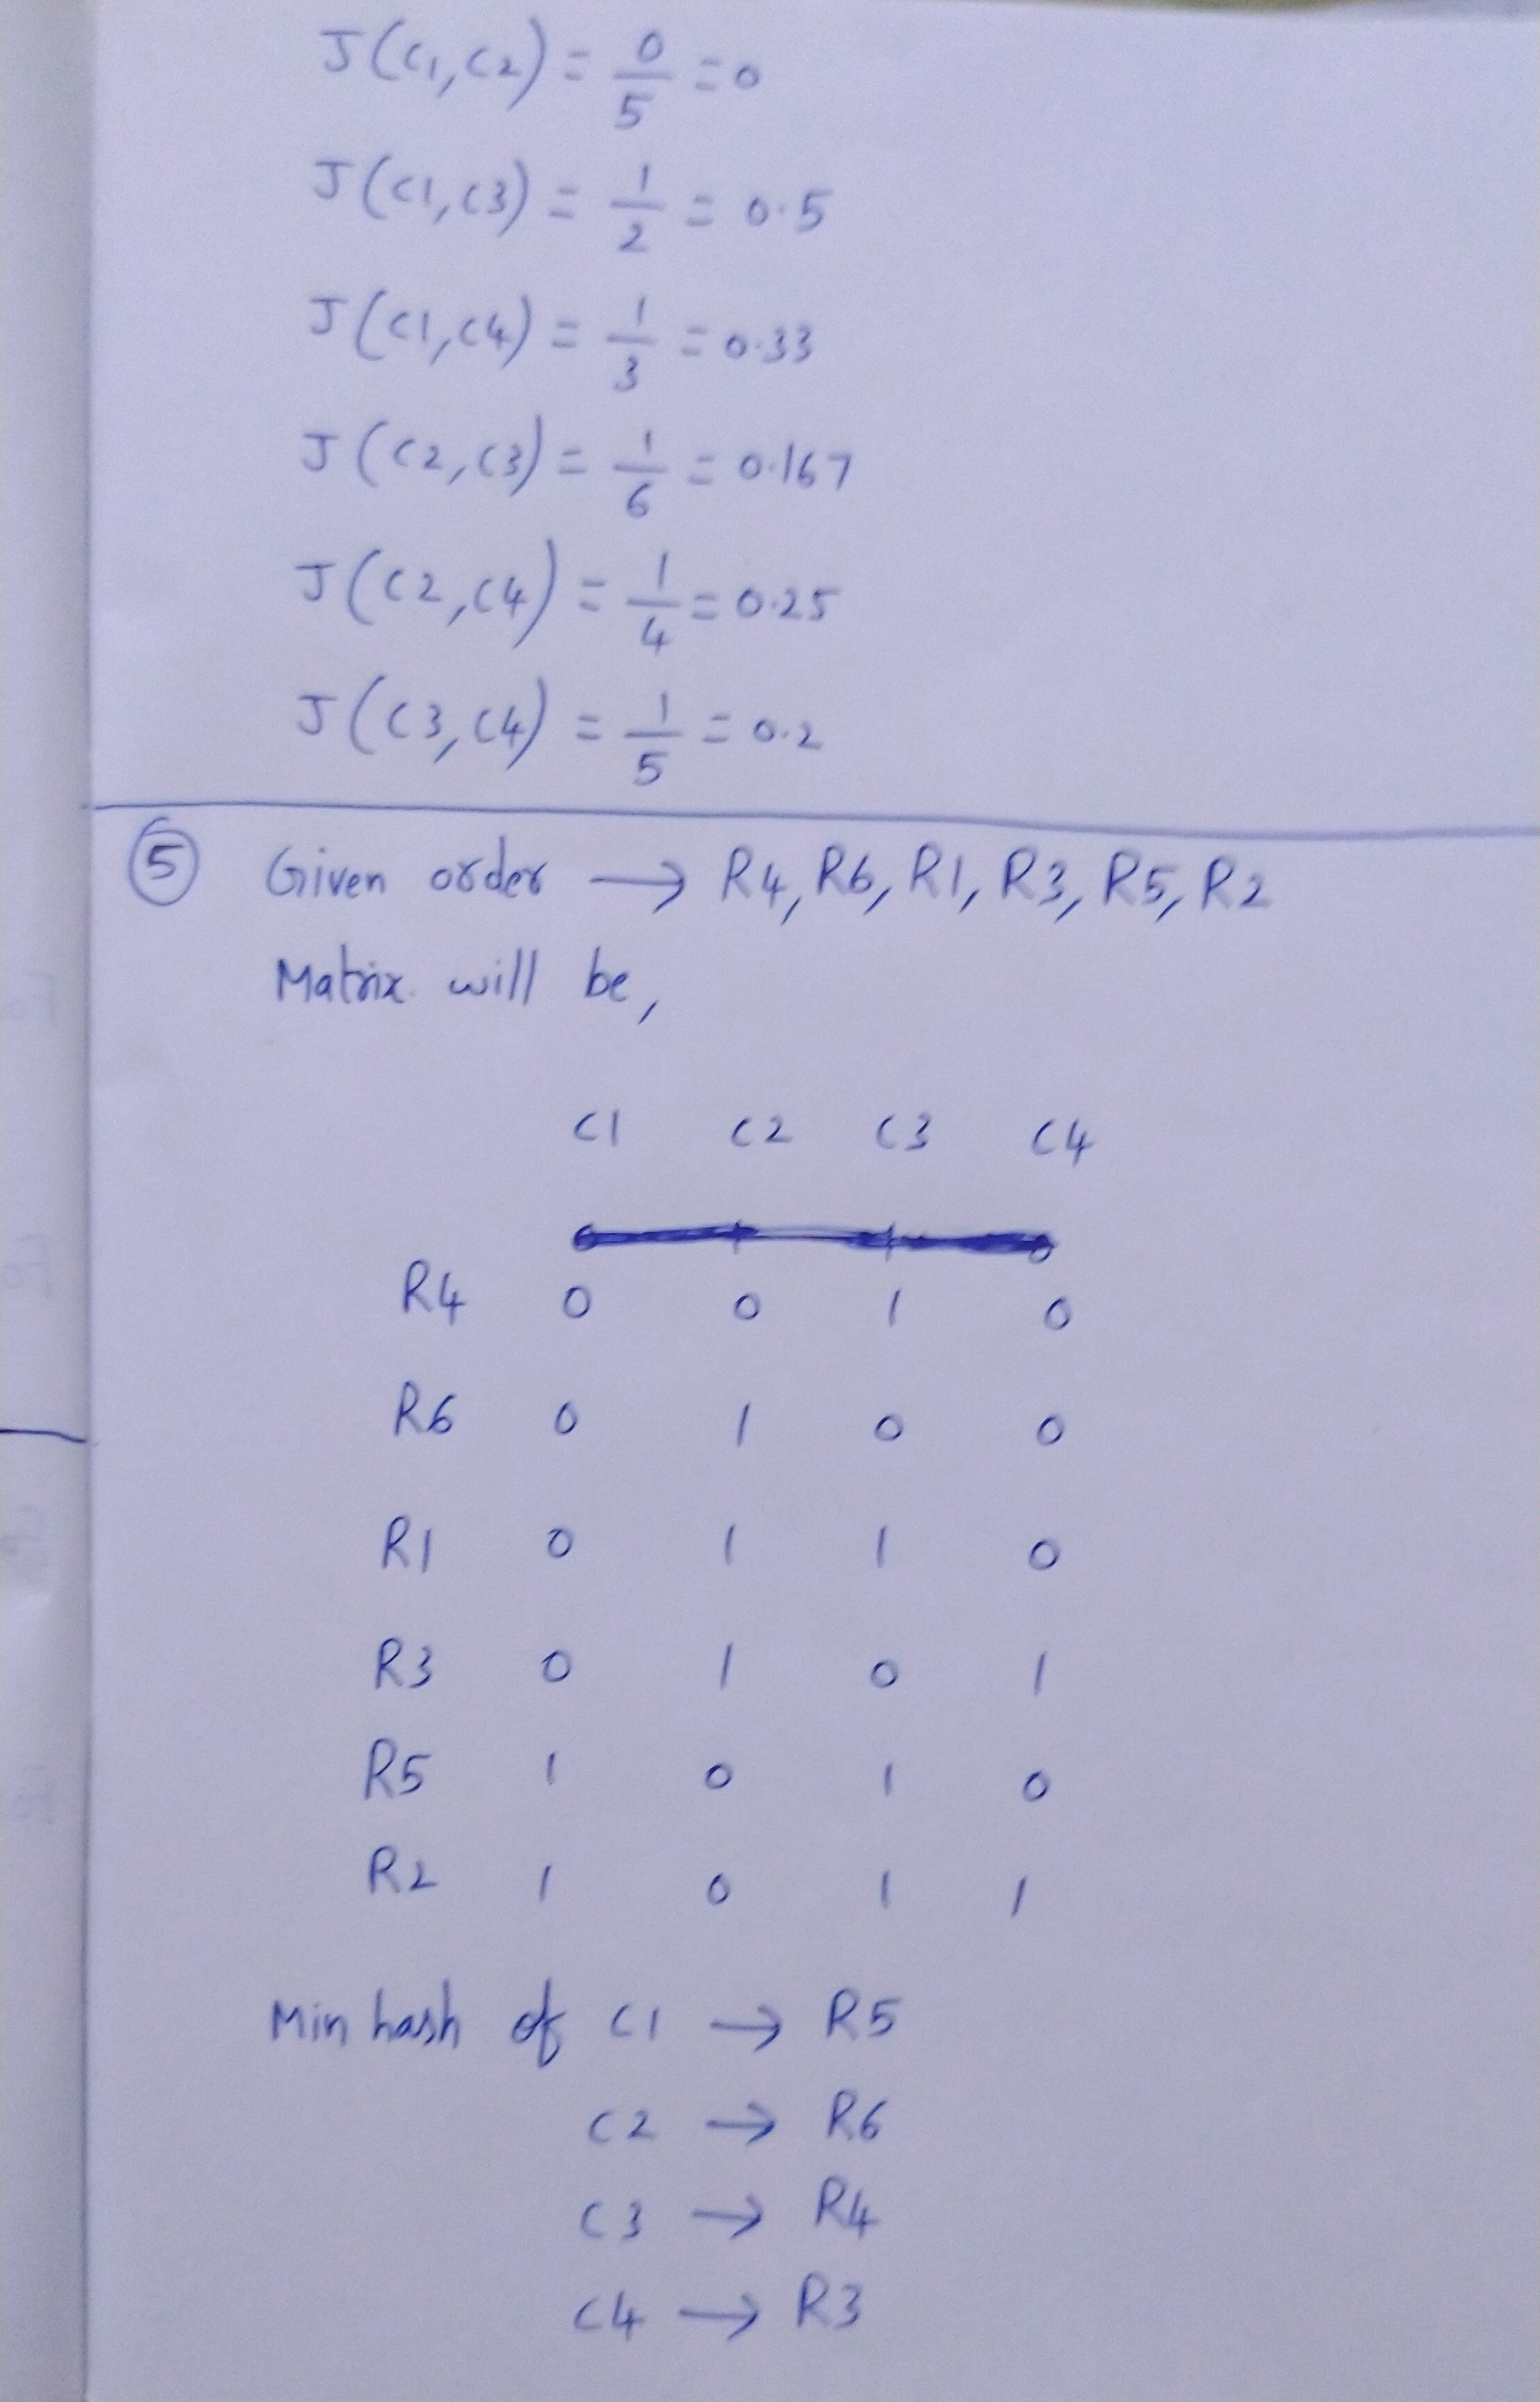 J(C1,C2) = 0/5 = 0
J(C1,C3) = 1/2 = 0.5
J(C1,C4) = 1/3 = 0.33
J(C2,C3) = 1/6 = 0.167
J(C2,C4) = 1/4 = 0.25
J(C3,C4) = 1/5 = 0.2
5 Given order → R4, R6, R1, R3, R5, R2
Matrix will be,
C1 C2 C3 C4
R4 0 0 1 0
R6 0 1 0 0
R1 0 1 1 0
R3 0 1 0 1
R5 1 0 1 0
R2 1 0 1 1
Min hash of C1 → R5
C2 → R6
C3 → R4
C4 → R3